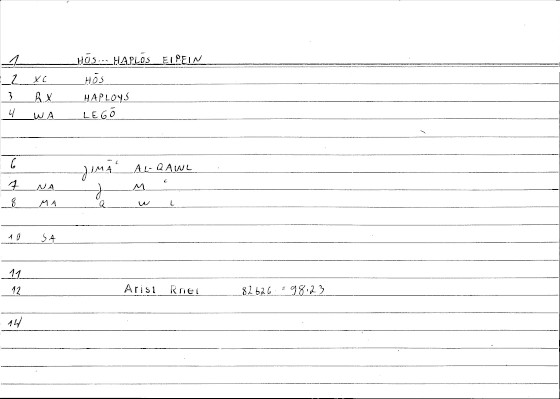 1 HŌS... HAPLŌS EIPEIN
2 XC HŌS
3 RX HAPLOYS
4 WA LEGŌ
6 ǧIMĀʿ AL-QAWL
7 NA ǧ M ʿ
8 MA Q W L
10 SA
11
12 Arist Rhet 82b26 = 98.23
14